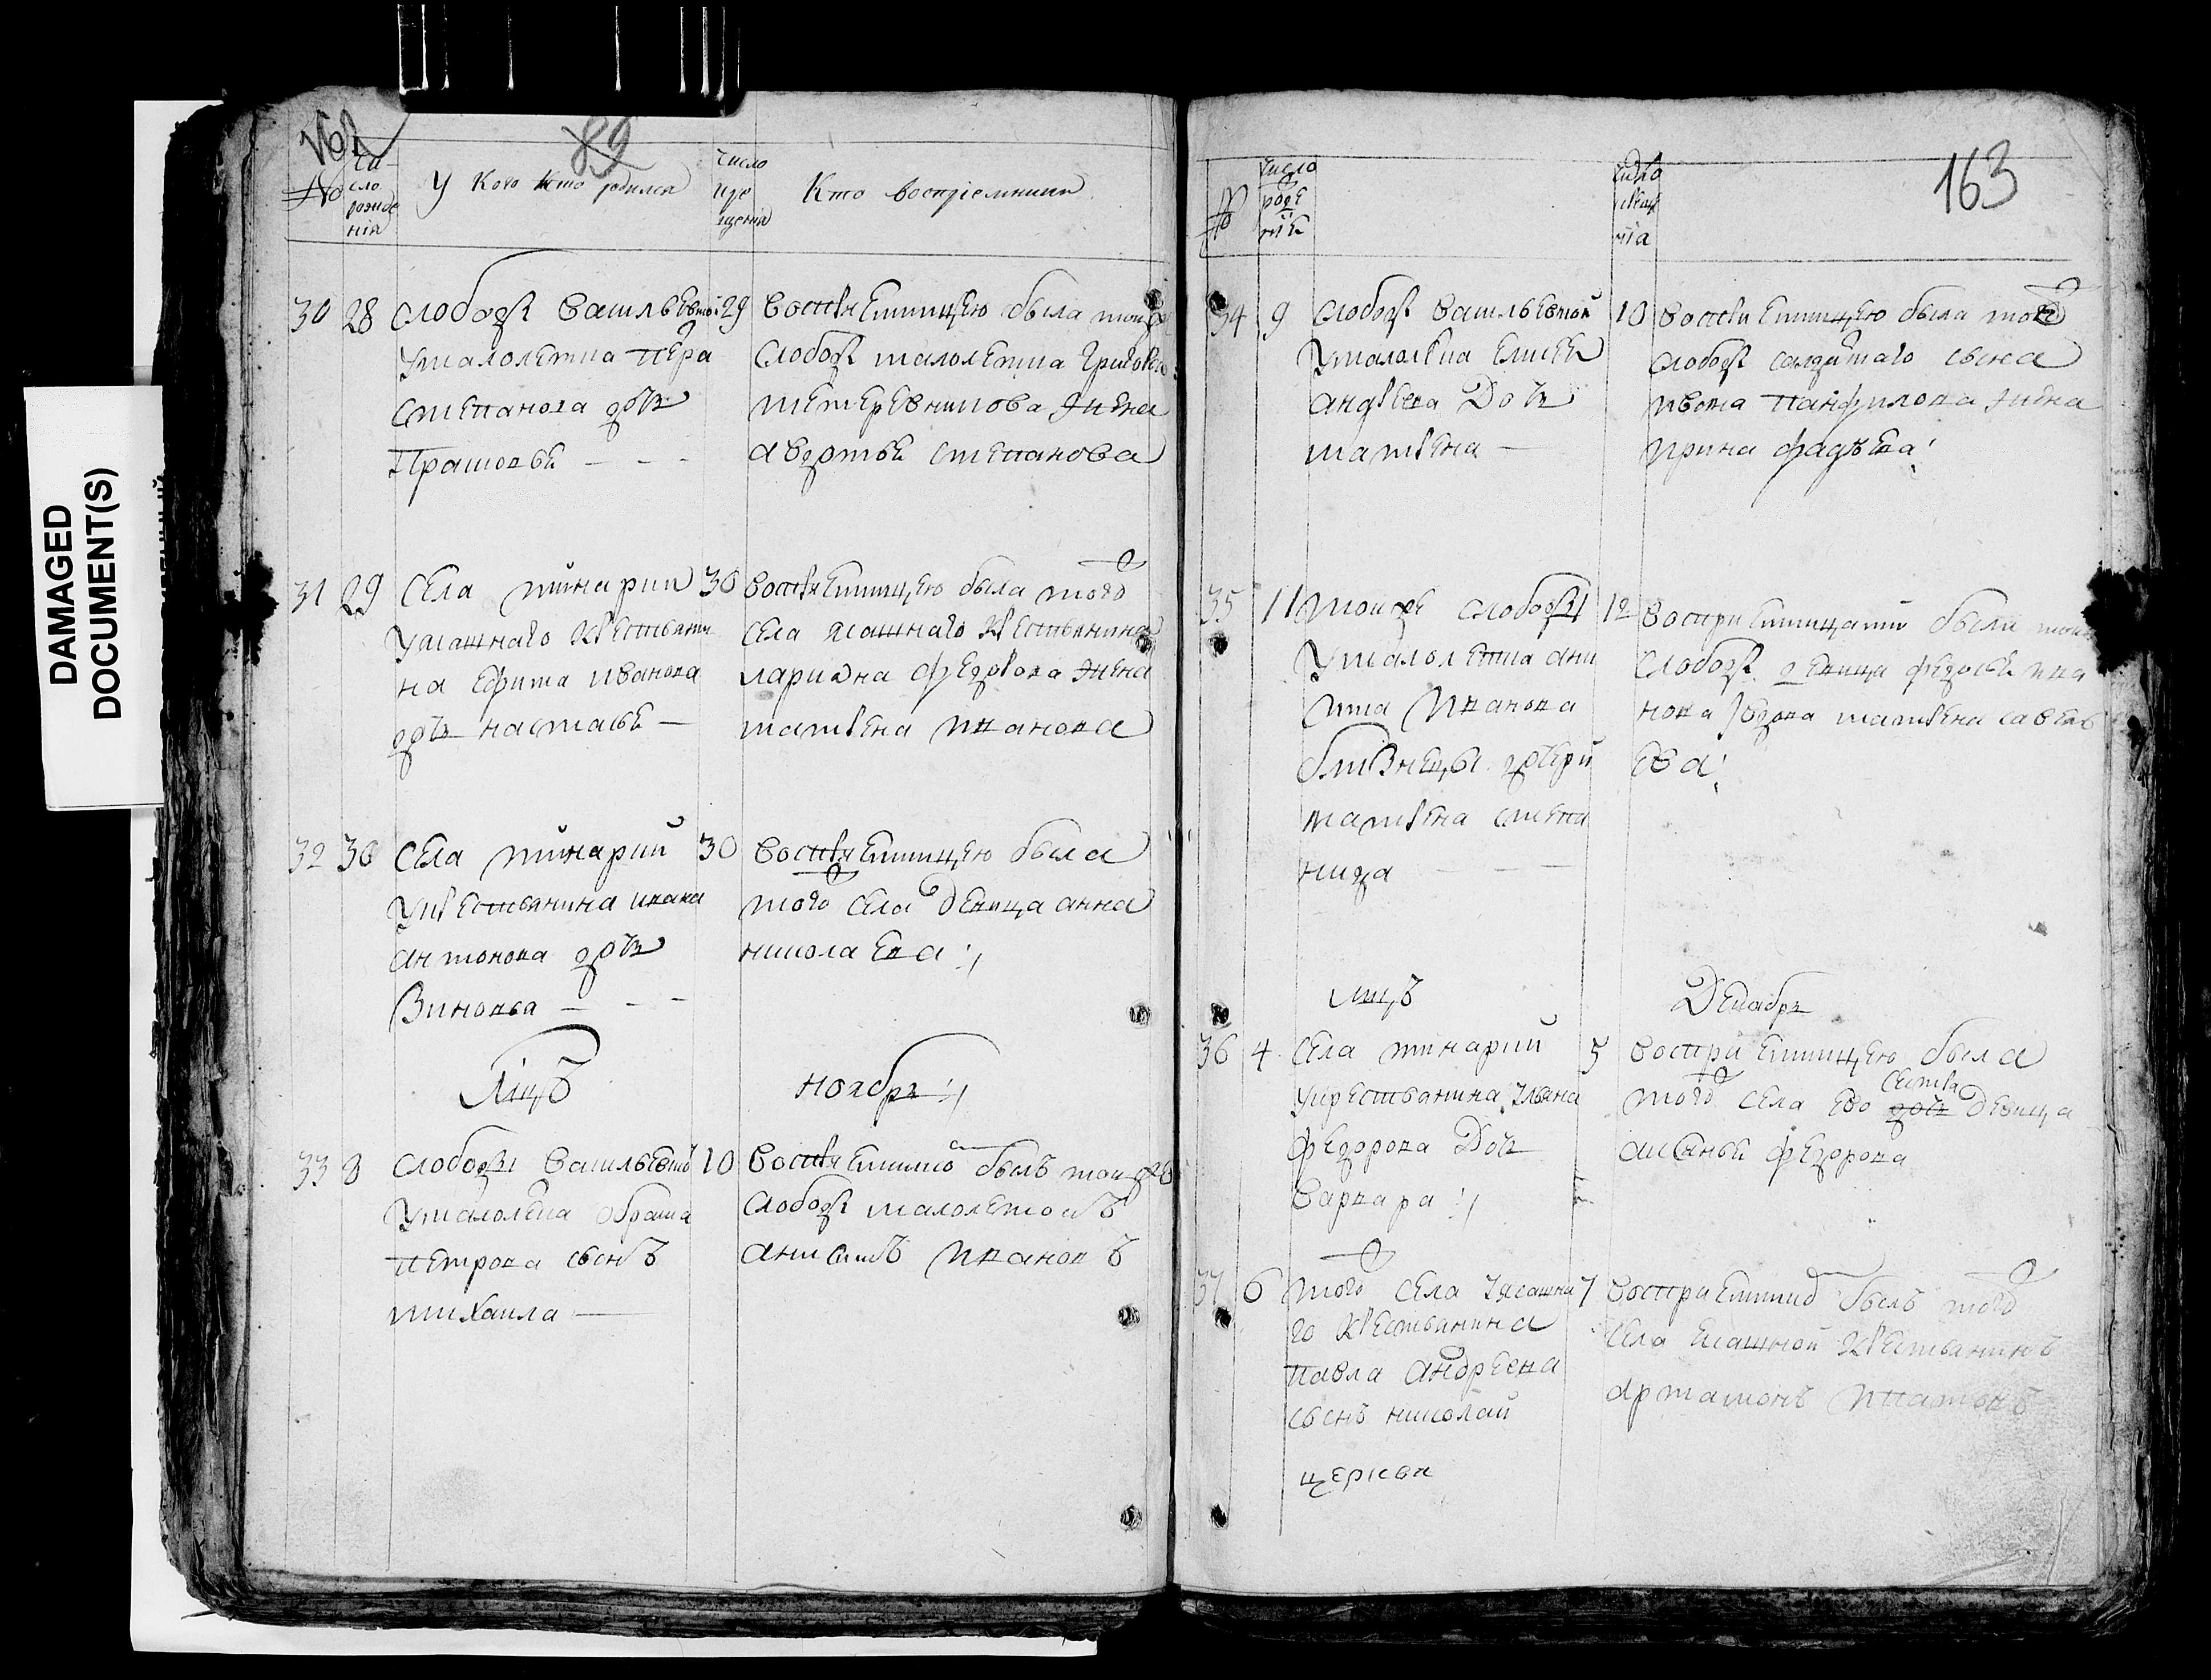 DAMAGED
DOCUMENT(S)
162
89
№
Чи
сло
рожде
нія
У Кого Кто родился
число
кре
щенія
Кто воспріемники
30 28 слободы васильевской 29
У малолетка пера
степанова дочь
Прасковья
воспріемницею была тойже
слободы малолетка Григорья
жена
авдотья степанова
31 29 села 30
У ясашнаго крестьяни
на ефима иванова
дочь настасья
воспріемницею была того
села ясашнаго крестьянина
лариона федорова жена
матрена иванова
32 30 села 30
У крестьянина ивана
антонова дочь
Зиновья
воспріемницею была
того села девица анна
николаева
Мцъ ноября
33 8 слободы васильевской 10
У малолетка абрама
петрова сынъ
михаила
воспріемникъ былъ тойже
слободы малолетокъ
анисимъ ивановъ
163
№
число
роде
нія
число
крещ
нія
34 9 слободы васильевской 10
У малолетка елисея
андреева дочь
матрена
воспріемницею была той
слободы салдатаго сына
ивана панфилова жена
ирина фадеева
35 11 тойже слободы 12
У малолетка ани
кина иванова
близнецы дочери
матрена степа
нида
воспріемницами были тойже
слободы девица федосья ива
нова вдова матрена савель
ева
мцъ Декабря
36 4 села 5
У крестьянина ульяна
федорова дочь
варвара
воспріемницею была
того села ево дочь сестра девица
аксинья федорова
37 6 того села У ясашна 7
го крестьянина
павла андреева
сынъ николай
воспріемник былъ того
села ясашной крестьянинъ
артамонъ
церкви